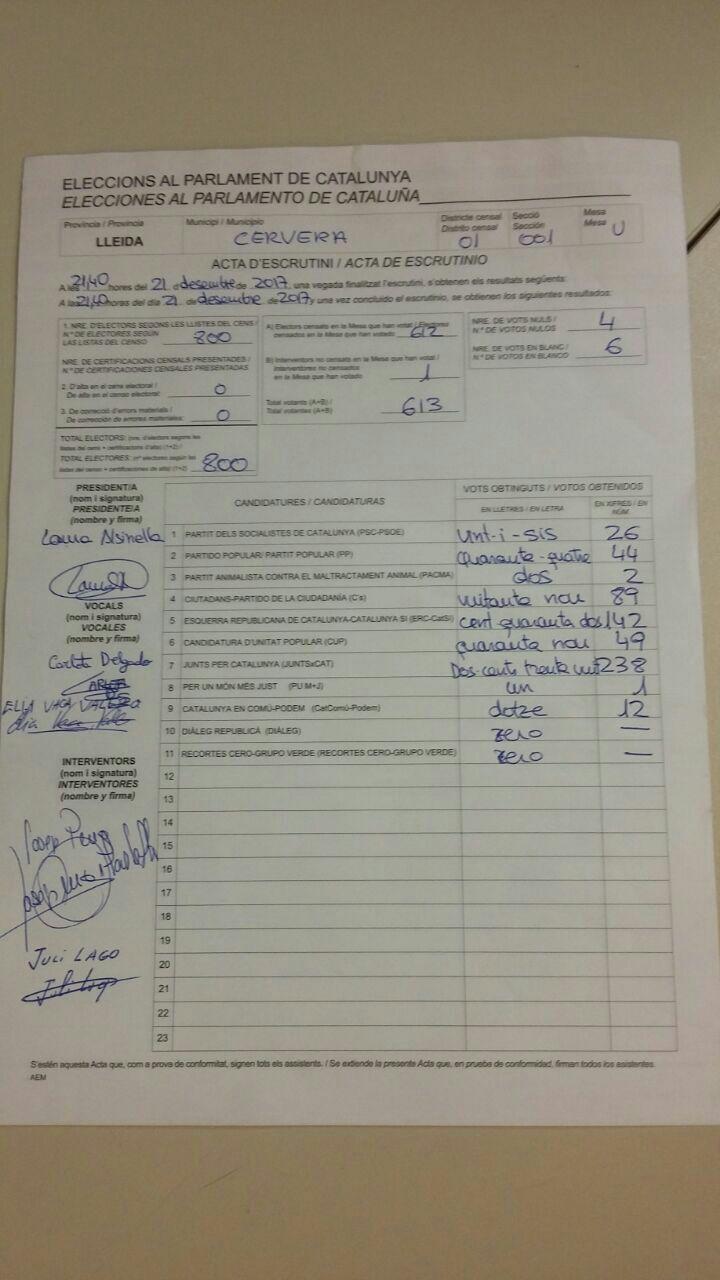 ELECCIONS AL PARLAMENT DE CATALUNYA
ELECCIONES AL PARLAMENTO DE CATALUÑA
Província / Provincia Municipi / Municipio Districte censal Secció Mesa
LLEIDA CERVERA Distrito censal Sección Mesa U
01 001
ACTA D'ESCRUTINI / ACTA DE ESCRUTINIO
A les 21,40 hores del 21 d desembre de 2017, una vegada finalitzat l'escrutini, s'obtenen els resultats següents:
A las 21,40 horas del día 21 de desembre de 2017 y una vez concluido el escrutinio, se obtienen los siguientes resultados:
1. NRE. D'ELECTORS SEGONS LES LLISTES DEL CENS /
N.º DE ELECTORES SEGÚN
LAS LISTAS DEL CENSO 800
NRE. DE CERTIFICACIONS CENSALS PRESENTADES /
N.º DE CERTIFICACIONES CENSALES PRESENTADAS
2. D'alta en el cens electoral /
De alta en el censo electoral: 0
3. De correcció d'errors materials /
De corrección de errores materiales: 0
TOTAL ELECTORS: (nre. d'electors segons les
llistes del cens + certificacions d'alta) (1+2) /
TOTAL ELECTORES: (nº electores según las
listas del censo + certificaciones de alta) (1+2) 800
A) Electors censats en la Mesa que han votat / Electores
censados en la Mesa que han votado 612
B) Interventors no censats en la Mesa que han votat /
Interventores no censados
en la Mesa que han votado 1
Total votants (A+B) /
Total votantes (A+B) 613
NRE. DE VOTS NULS /
N.º DE VOTOS NULOS 4
NRE. DE VOTS EN BLANC /
N.º DE VOTOS EN BLANCO 6
PRESIDENT/A
(nom i signatura)
PRESIDENTE/A
(nombre y firma)
Laura Alsinella
VOCALS
(nom i signatura)
VOCALES
(nombre y firma)
Carlota Delgado
ELIA VACA
INTERVENTORS
(nom i signatura)
INTERVENTORES
(nombre y firma)
Josep
JULI LAGO
Juli Lago
CANDIDATURES / CANDIDATURAS VOTS OBTINGUTS / VOTOS OBTENIDOS
EN LLETRES / EN LETRA EN XIFRES / EN NÚM.
1 PARTIT DELS SOCIALISTES DE CATALUNYA (PSC-PSOE) vint-i-sis 26
2 PARTIDO POPULAR/ PARTIT POPULAR (PP) Quaranta-quatre 44
3 PARTIT ANIMALISTA CONTRA EL MALTRACTAMENT ANIMAL (PACMA) dos 2
4 CIUTADANS-PARTIDO DE LA CIUDADANÍA (C's) vuitanta nou 89
5 ESQUERRA REPUBLICANA DE CATALUNYA-CATALUNYA SÍ (ERC-CatSí) cent quaranta dos 142
6 CANDIDATURA D'UNITAT POPULAR (CUP) quaranta nou 49
7 JUNTS PER CATALUNYA (JUNTSxCAT) Dos-cents trenta vuit 238
8 PER UN MÓN MÉS JUST (PUM+J) un 1
9 CATALUNYA EN COMÚ-PODEM (CatComú-Podem) dotze 12
10 DIÀLEG REPUBLICÀ (DIÀLEG) zero —
11 RECORTES CERO-GRUPO VERDE (RECORTES CERO-GRUPO VERDE) zero —
12
13
14
15
16
17
18
19
20
21
22
23
S'estén aquesta Acta que, com a prova de conformitat, signen tots els assistents. / Se extiende la presente Acta que, en prueba de conformidad, firman todos los asistentes.
AEM